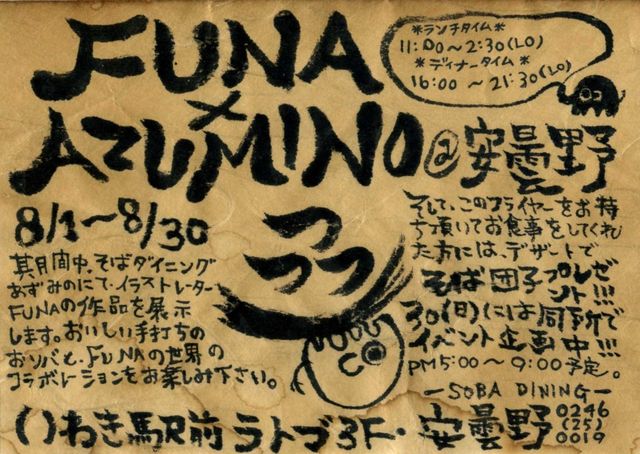 FUNA
×
AZUMINO @ 安曇野
*ランチタイム*
11:00〜2:30(LO)
*ディナータイム*
16:00 〜21:30(LO)
8/1〜8/30
其月間中、そばダイニング
あずみのにて、イラストレーター
FUNAの作品を展示
します。おいしい手打ちの
おソバと、FUNAの世界の
コラボレーションをお楽しみ下さい。
つ
つつ
そして、このフライヤーをお持
ち頂いてお食事をしてくれ
た方には、デザートで
そば団子プレゼ
ント!!!
30(日)には同所で
イベント企画中!!!
PM5:00〜9:00予定。
ーSOBA DININGー
いわき駅前ラトブ3F・安曇野
0246
(25)
0019